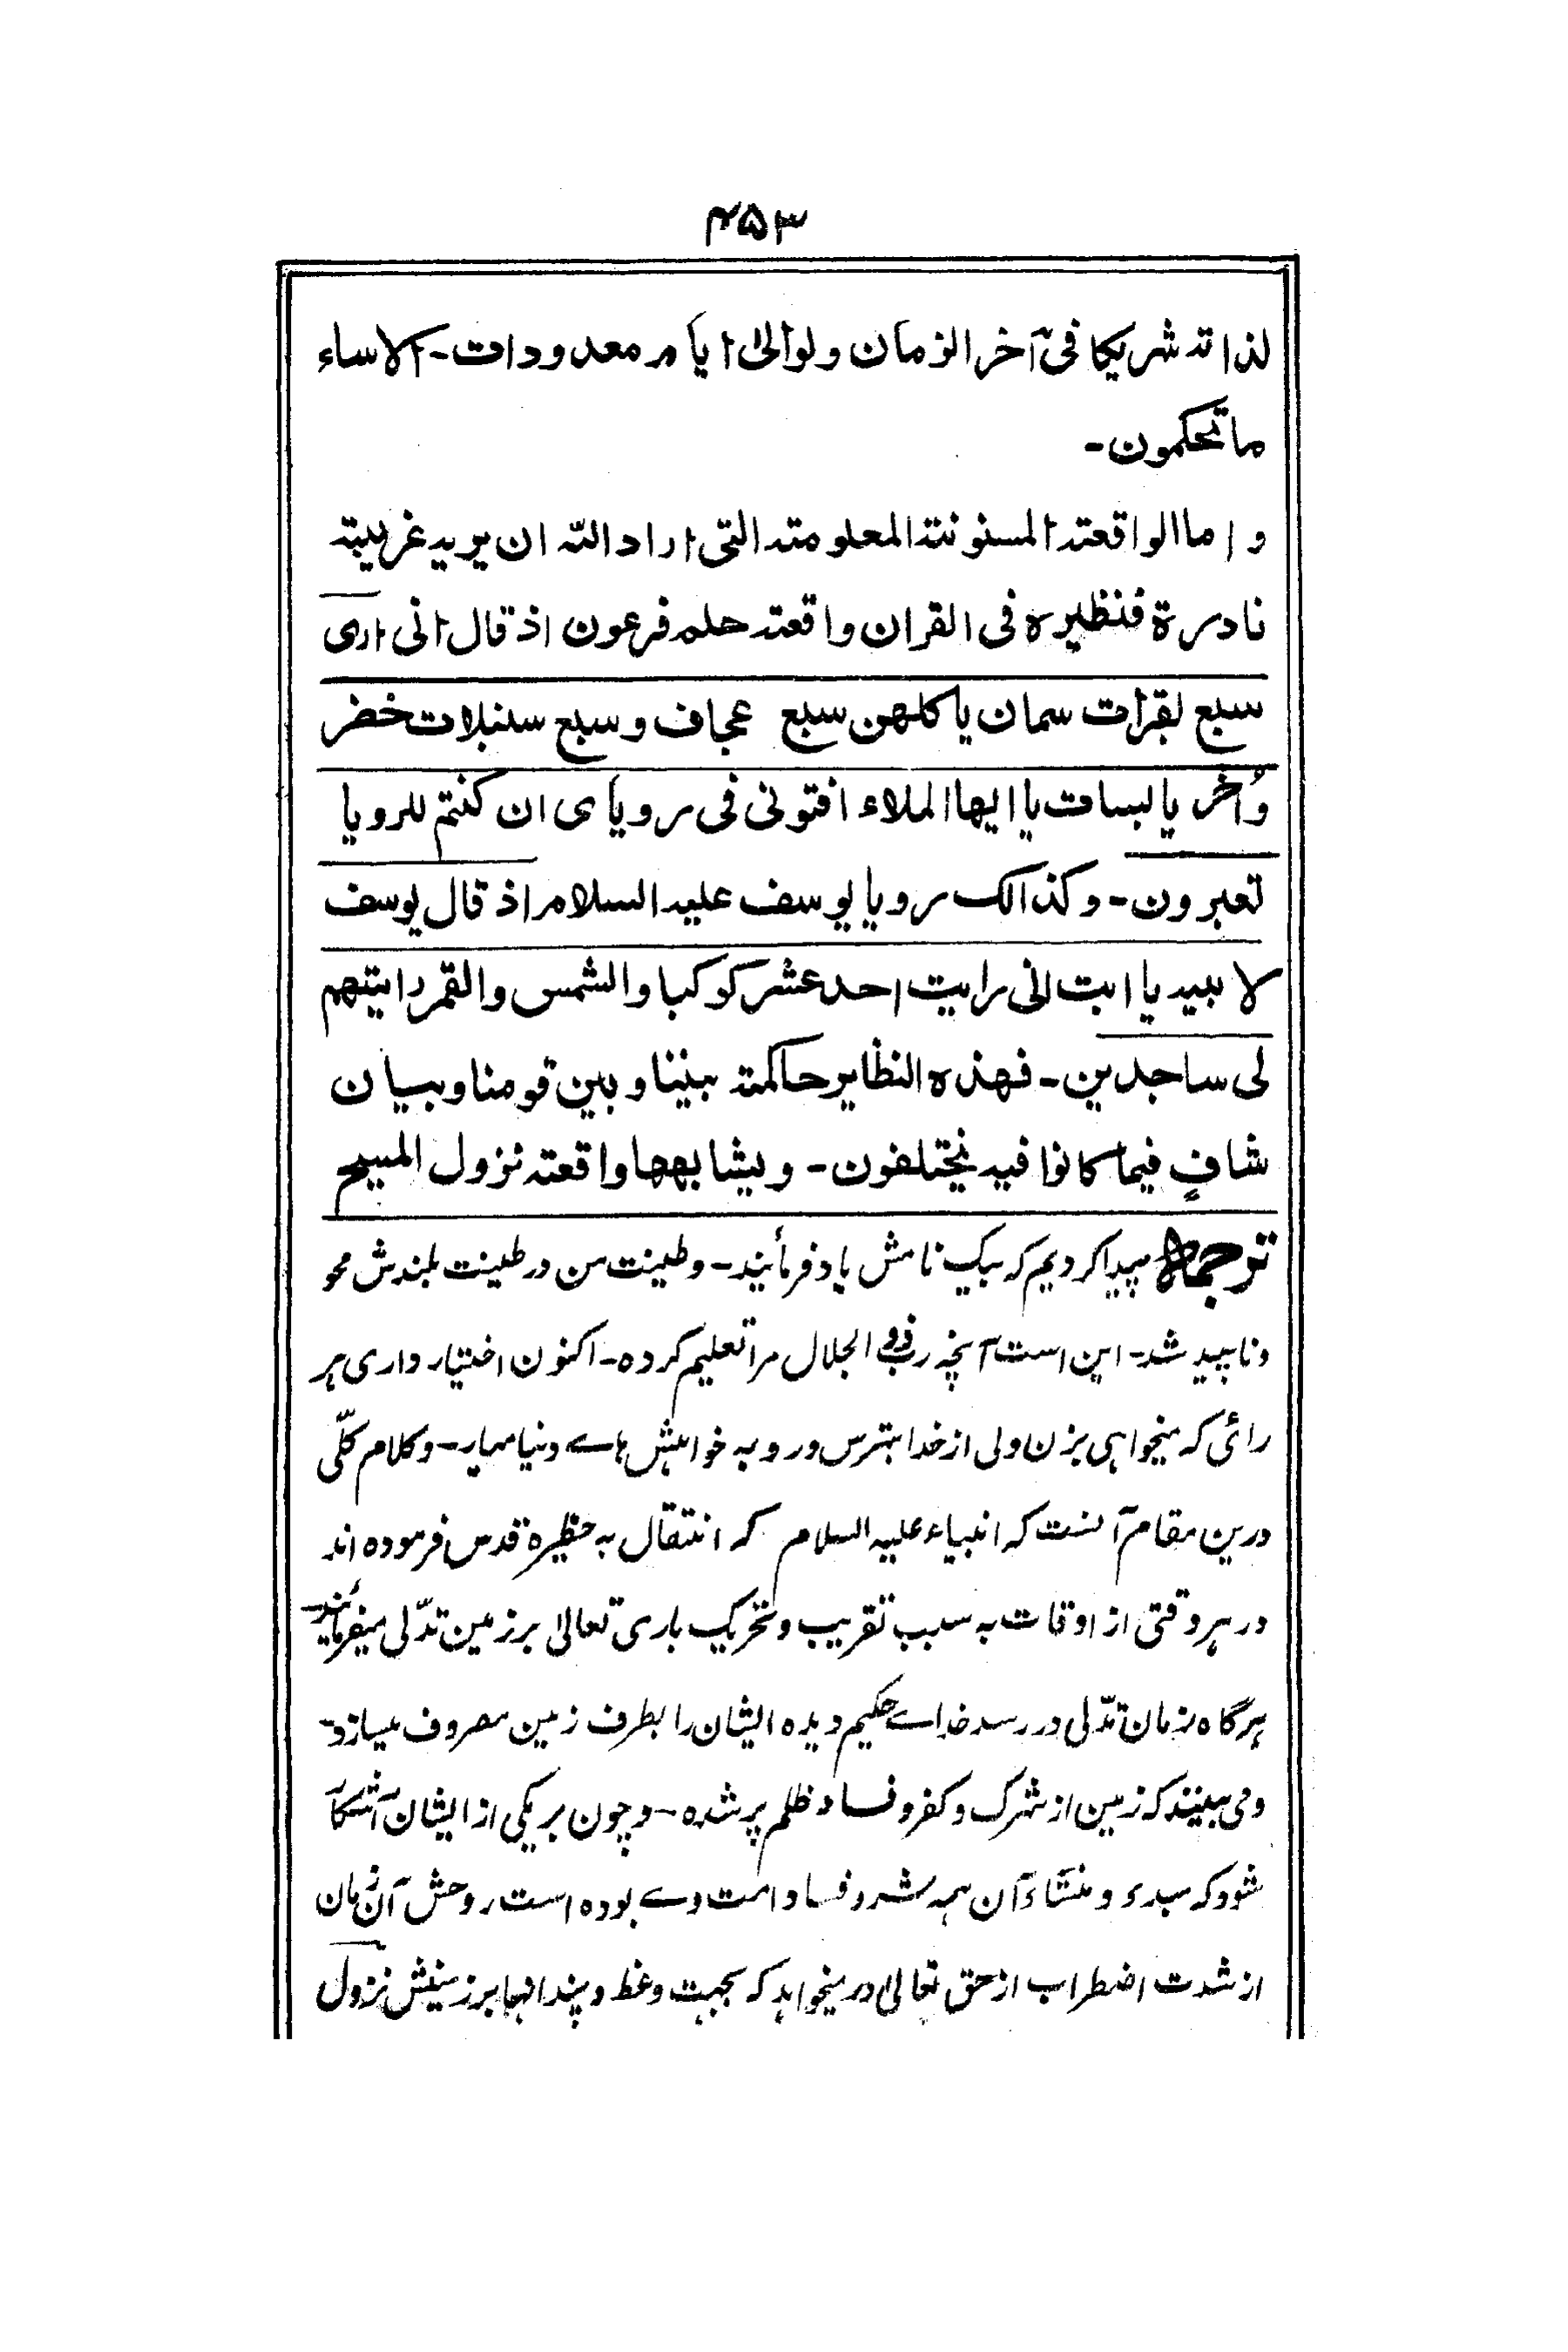 ۴۵۳
لذاتہ شریکا فی آخر الزمان ولو الیٰ ایام معدودات - الا ساء
ما تحکمون -
و اما الواقعتہ المسنونتہ المعلومتہ التی اراد اللہ ان یرید غریبتہ
نادرۃ فنظیرہ فی القران واقعتہ حلم فرعون اذ قال انی اری
سبع بقرات سمان یاکلھن سبع عجاف وسبع سنبلات خضر
وأخر یابسات یا ایھا الملاء افتونی فی رویای ان کنتم للرویا
تعبرون - وکذالک رویا یوسف علیہ السلام اذ قال یوسف
لابیہ یا ابت انی رایت احد عشر کوکبا والشمس والقمر رایتھم
لی ساجدین - فھذہ النظایر حاکمتہ بیننا و بین قومنا وبیان
شافٍ فیما کانوا فیہ یختلفون - ویشابھھا واقعتہ نزول المسیح
ترجمہ پیدا کردیم کہ بیک نامش یاد فرمایند - وطینت من در طینت بلندش محو
وناپید شد - این است آنچہ رب ذو الجلال مرا تعلیم کردہ - اکنون اختیار داری ہر
رائی کہ میخواہی بزن ولی از خدا بترس ورو بہ خواہش ہاے دنیا میار - وکلام کلّی
درین مقام آنست کہ انبیاء علیہ السلام کہ انتقال بہ حظیرۃ قدس فرمودہ اند
در ہر وقتی از اوقات بہ سبب تقریب وتحریک باری تعالیٰ بر زمین تدلّی میفرمایند
ہر گاہ زمان تدلّی در رسد خداے حکیم دیدہ ایشان را بطرف زمین مصروف میسازد -
ومی بینند کہ زمین از شرک وکفر وفساد وظلم پر شدہ - وچون بریکی از ایشان آشکار
شود کہ مبدء و منشاء آن ہمہ شر وفساد امت وے بودہ است روحش آن زمان
از شدت اضطراب از حق تعالیٰ در میخواہد کہ بجہت وعظ و پند انہا بر زمینش نزول